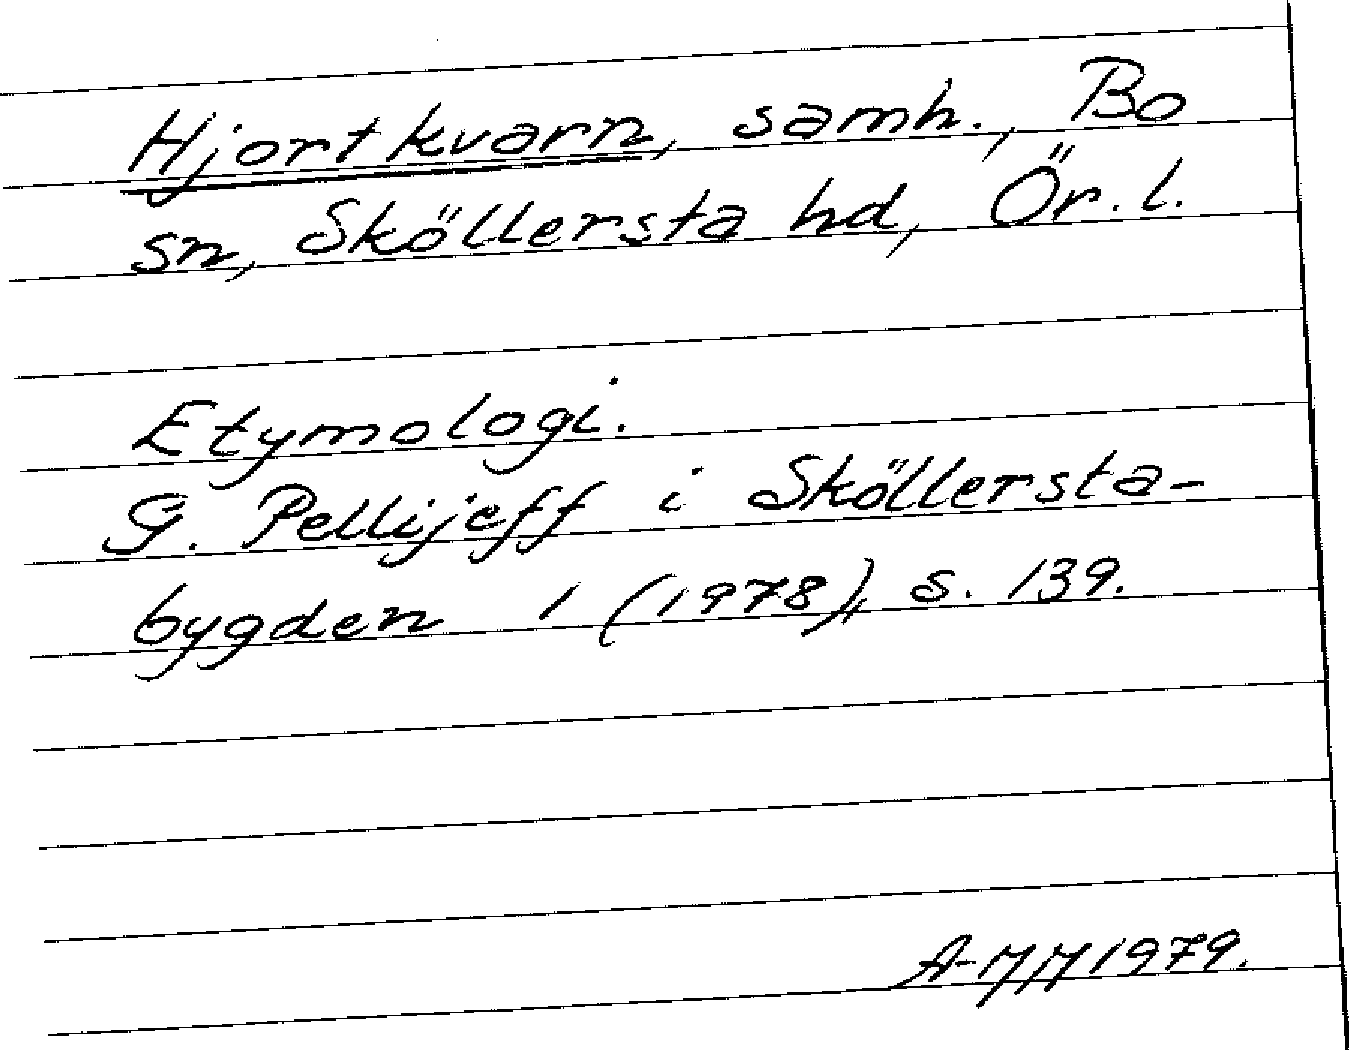 Hjortkvarn, samh., Bo
sn, Sköllersta hd, Ör. l.
Etymologi.
G. Pellijeff i Sköllersta-
bygden 1 (1978), s. 139.
1979.